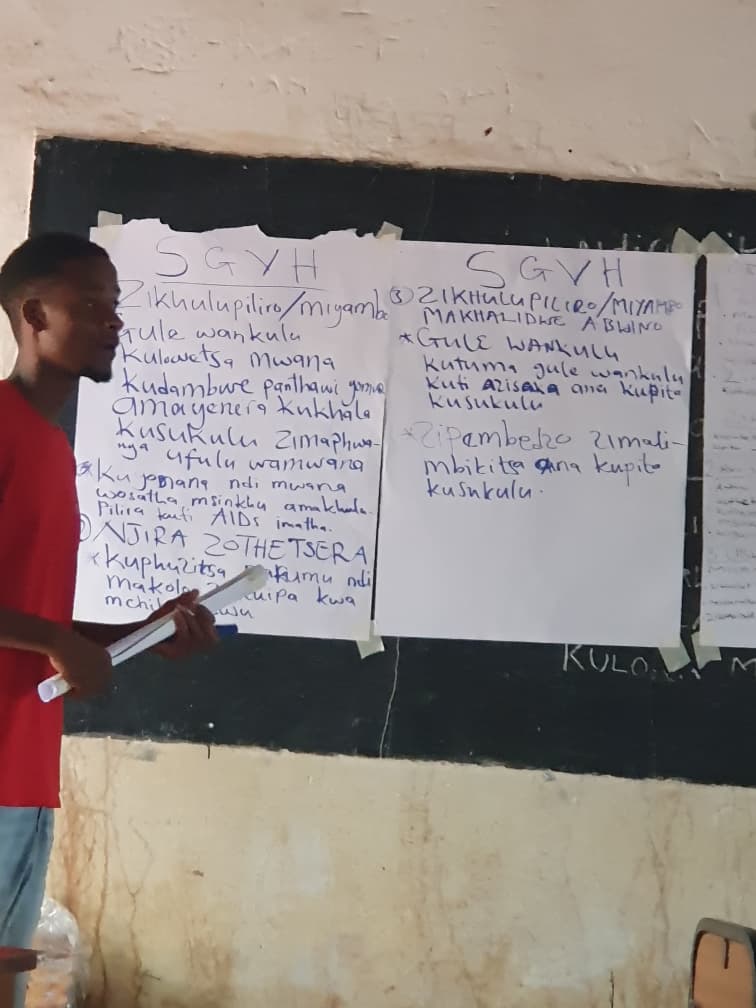 SGVH
Zikhulupiliro/miyambo
Gule wankulu
Kulowetsa mwana
kudambwe panthawi yomwe
amayenera kukhala
kusukulu zimaphwa-
nya ufulu wamwana
* Ku gonana ndi mwana
wosatha msinkhu amakhulu-
pilira kuti AIDs imatha.
NJIRA ZOTHETSERA
* Kuphuzitsa mafumu ndi
makolo kuipa kwa
SGVH
③ ZIKHULUPILIRO/MIYAMBO
MAKHALIDWE ABWINO
* GULE WANKULU
Kutuma gule wankulu
kuti azisaka ana kupita
kusukulu
* Zipembedzo zimali-
mbikitsa ana kupita
kusukulu.
KULO
M